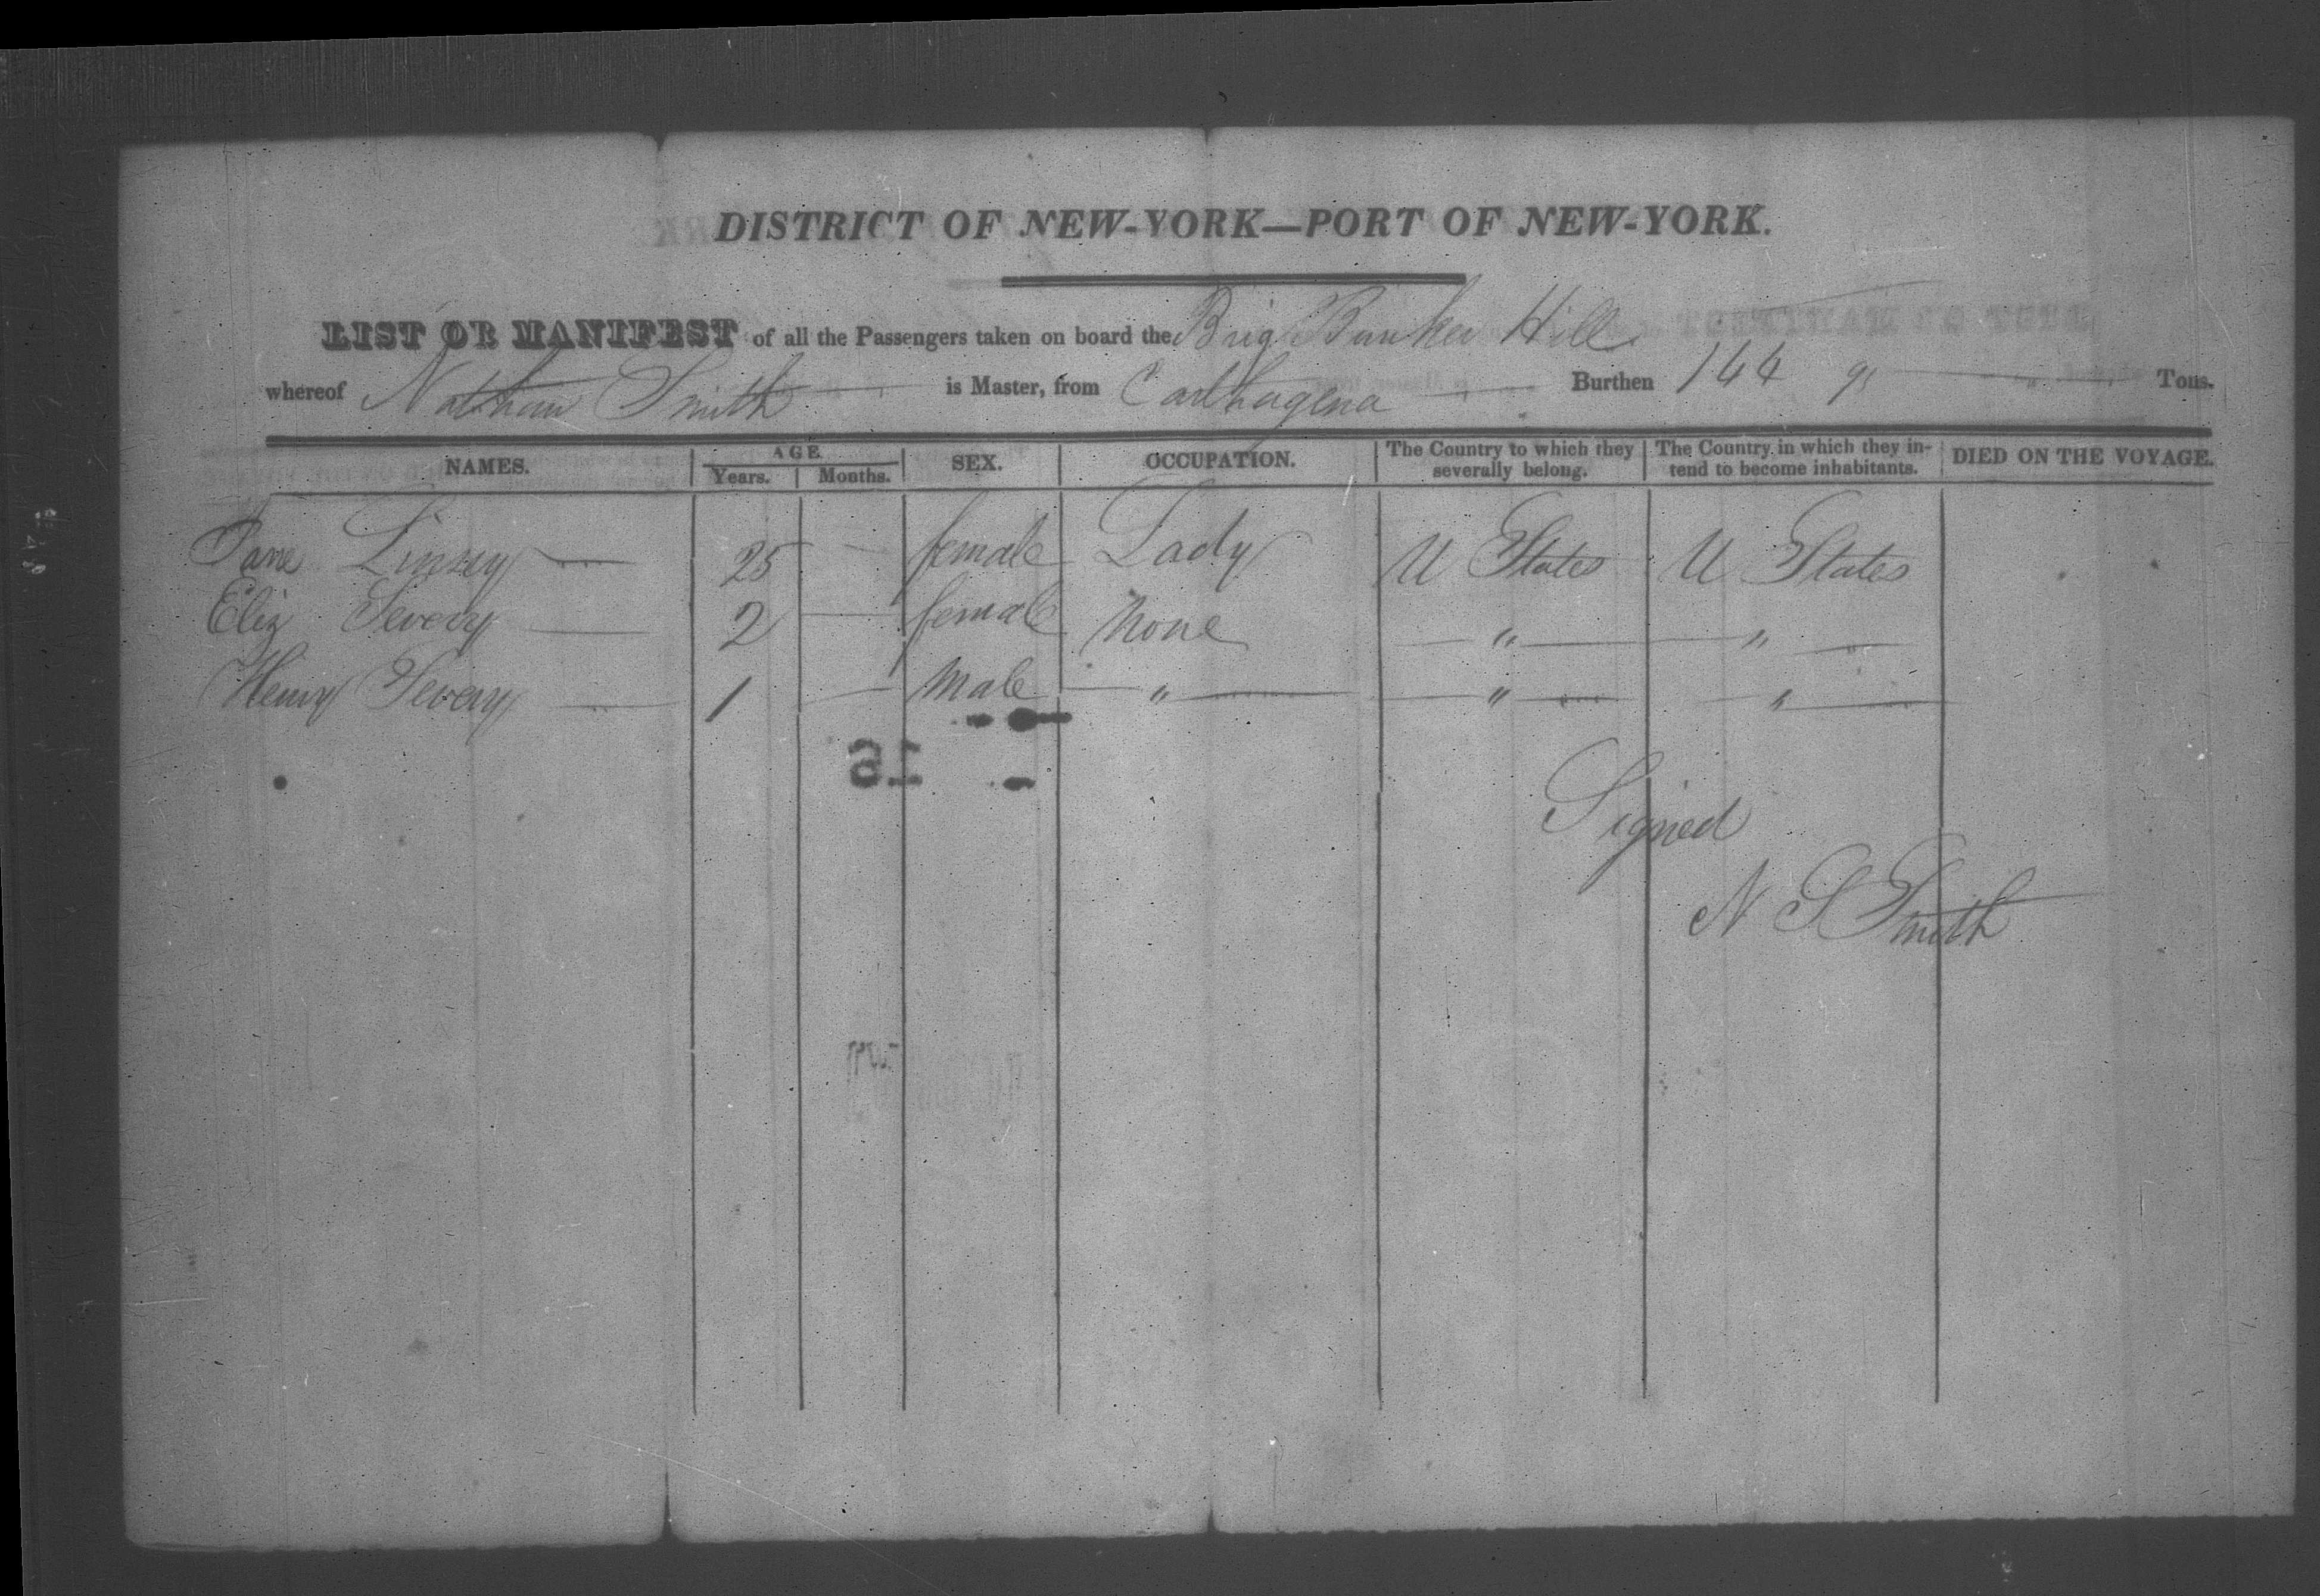 DISTRICT OF NEW-YORK—PORT OF NEW-YORK.
LIST OR MANIFEST of all the Passengers taken on board the Brig Bunker Hill
whereof Nathan Smith is Master, from Carthagena Burthen 144 Tons.
NAMES. AGE SEX. OCCUPATION. The Country to which they severally belong. The Country in which they intend to become inhabitants. DIED ON THE VOYAGE.
Years. Months.
Jane 25 female Lady U States U States
Eliz 2 female None " "
Henry 1 Male " " "
16
Signed
N S Smith